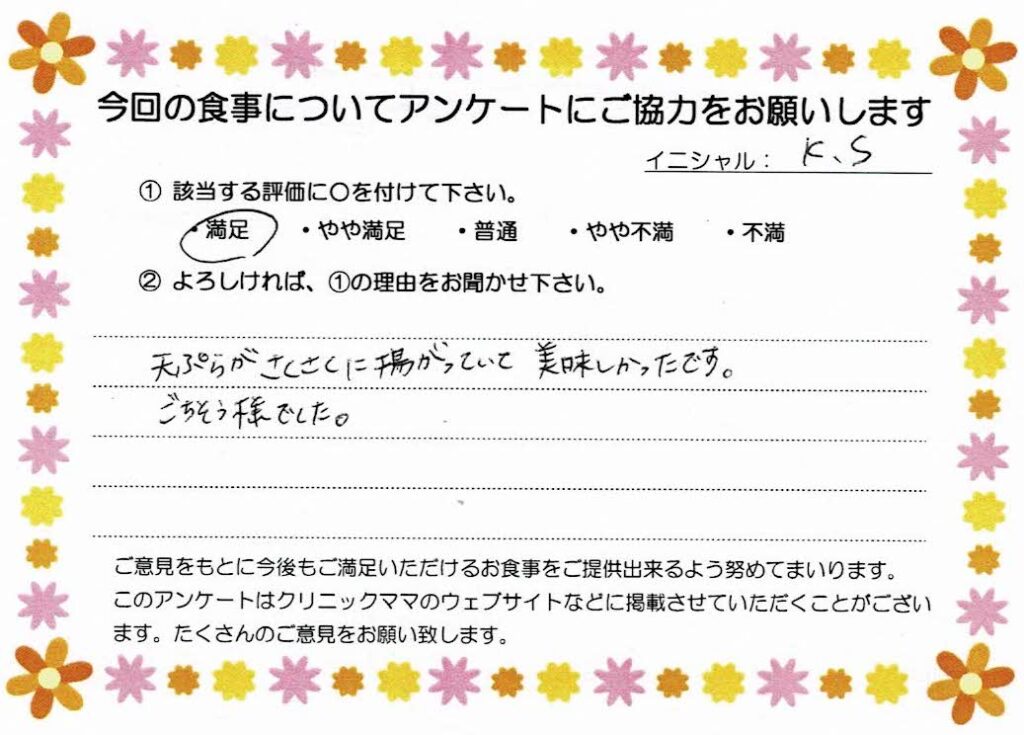 今回の食事についてアンケートにご協力をお願いします
イニシャル： K、S
① 該当する評価に○を付けて下さい。
・満足 ・やや満足 ・普通 ・やや不満 ・不満
② よろしければ、①の理由をお聞かせ下さい。
天ぷらがさくさくに揚がっていて 美味しかったです。
ごちそう様でした。
ご意見をもとに今後もご満足いただけるお食事をご提供出来るよう努めてまいります。
このアンケートはクリニックママのウェブサイトなどに掲載させていただくことがござい
ます。たくさんのご意見をお願い致します。